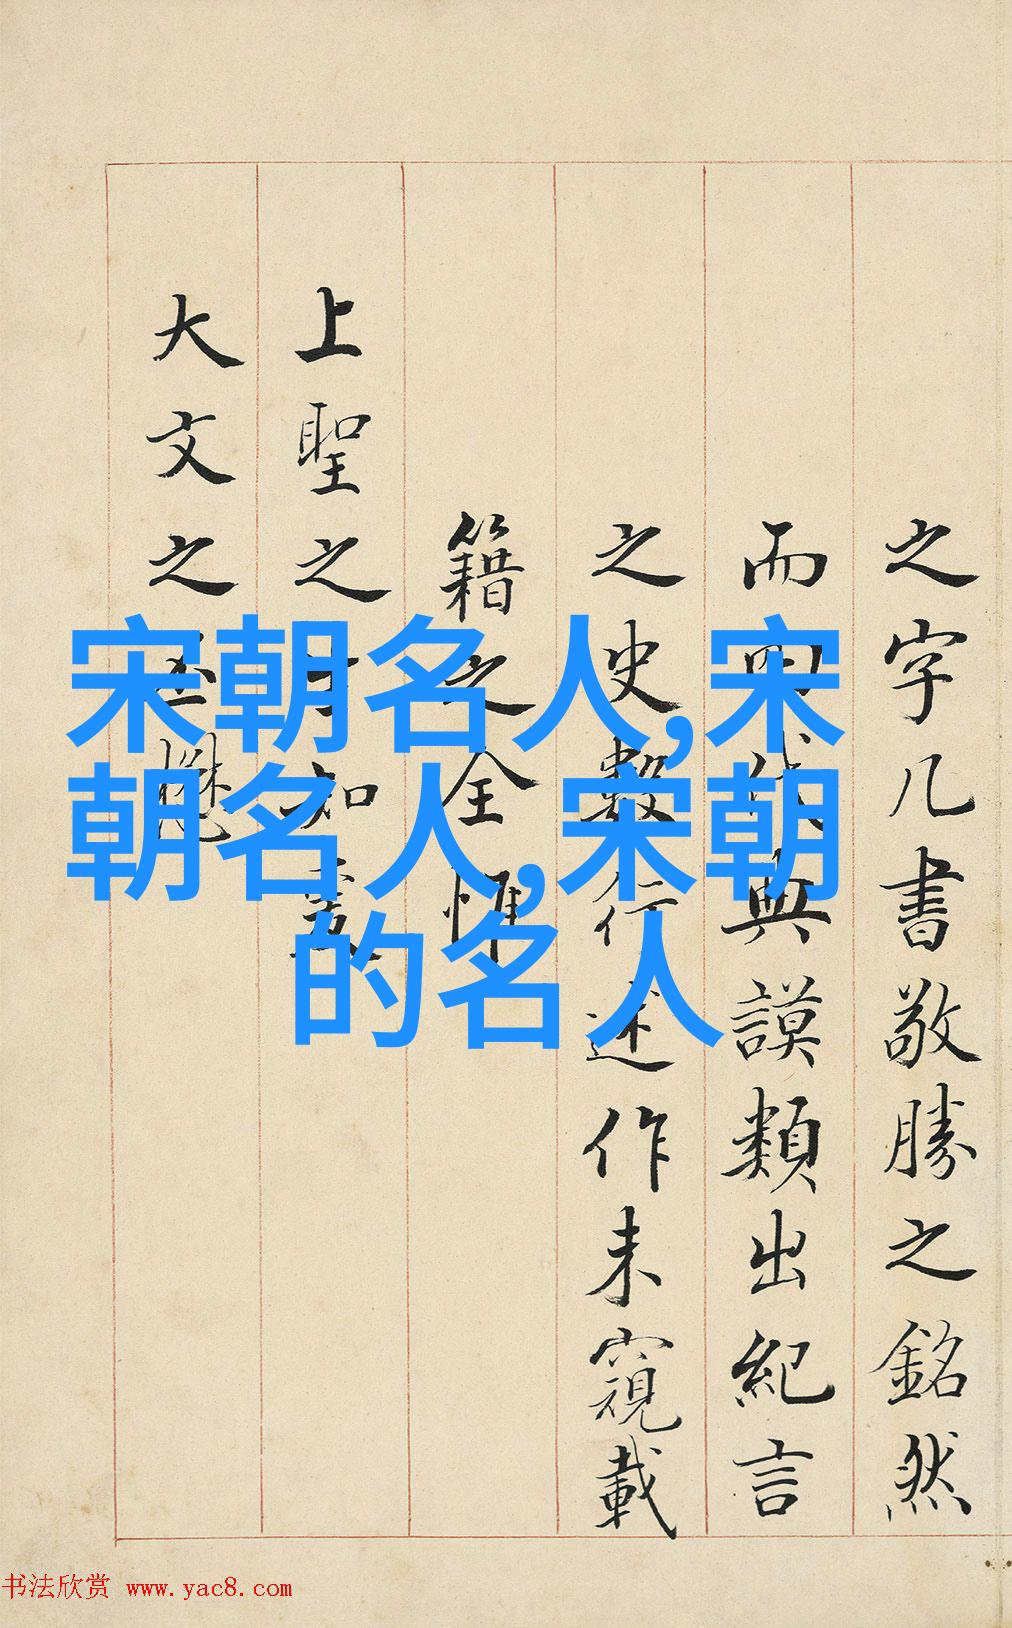 之字几書敬勝之銘然
而四代典謨類出紀言
之史數行述作未窺載
籍之全惟
上聖之知
大文之懋
宋朝名人,宋
朝名人,宋朝
的名人
书法欣赏 www.yac8.com